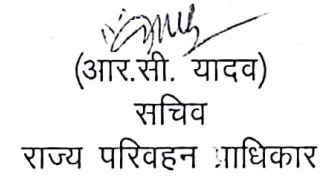 (आर.सी. यादव)
सचिव
राज्य परिवहन प्राधिकार